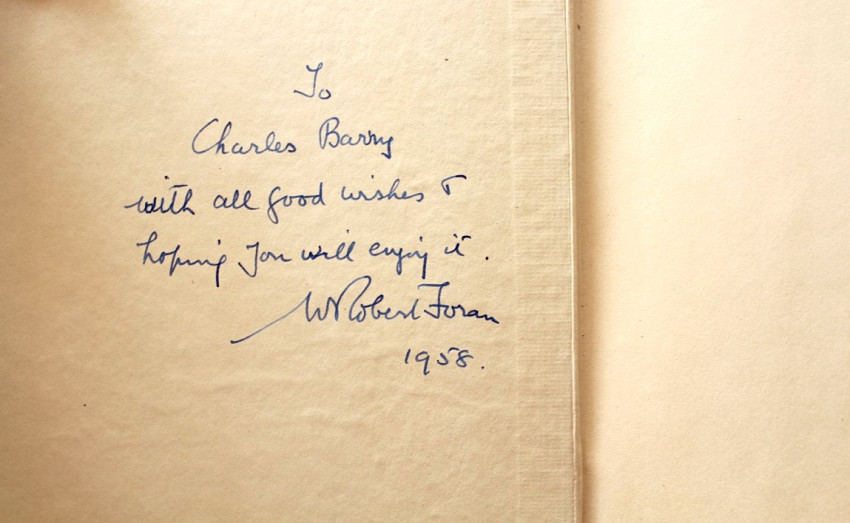 To
Charles Barry
with all good wishes &
hoping you will enjoy it.
W Robert Foran
1958.